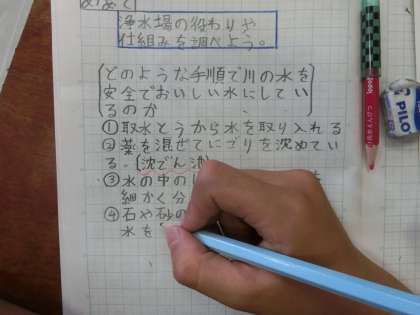 めあて
浄水場の役わりや
仕組みを調べよう。
どのような手順で川の水を
安全でおいしい水にしてい
るのか
①取水とうから水を取り入れる
②薬を混ぜてにごりを沈めてい
る.(沈でん池)
③水の中の
細かく分
④石や砂の
水を
PILO